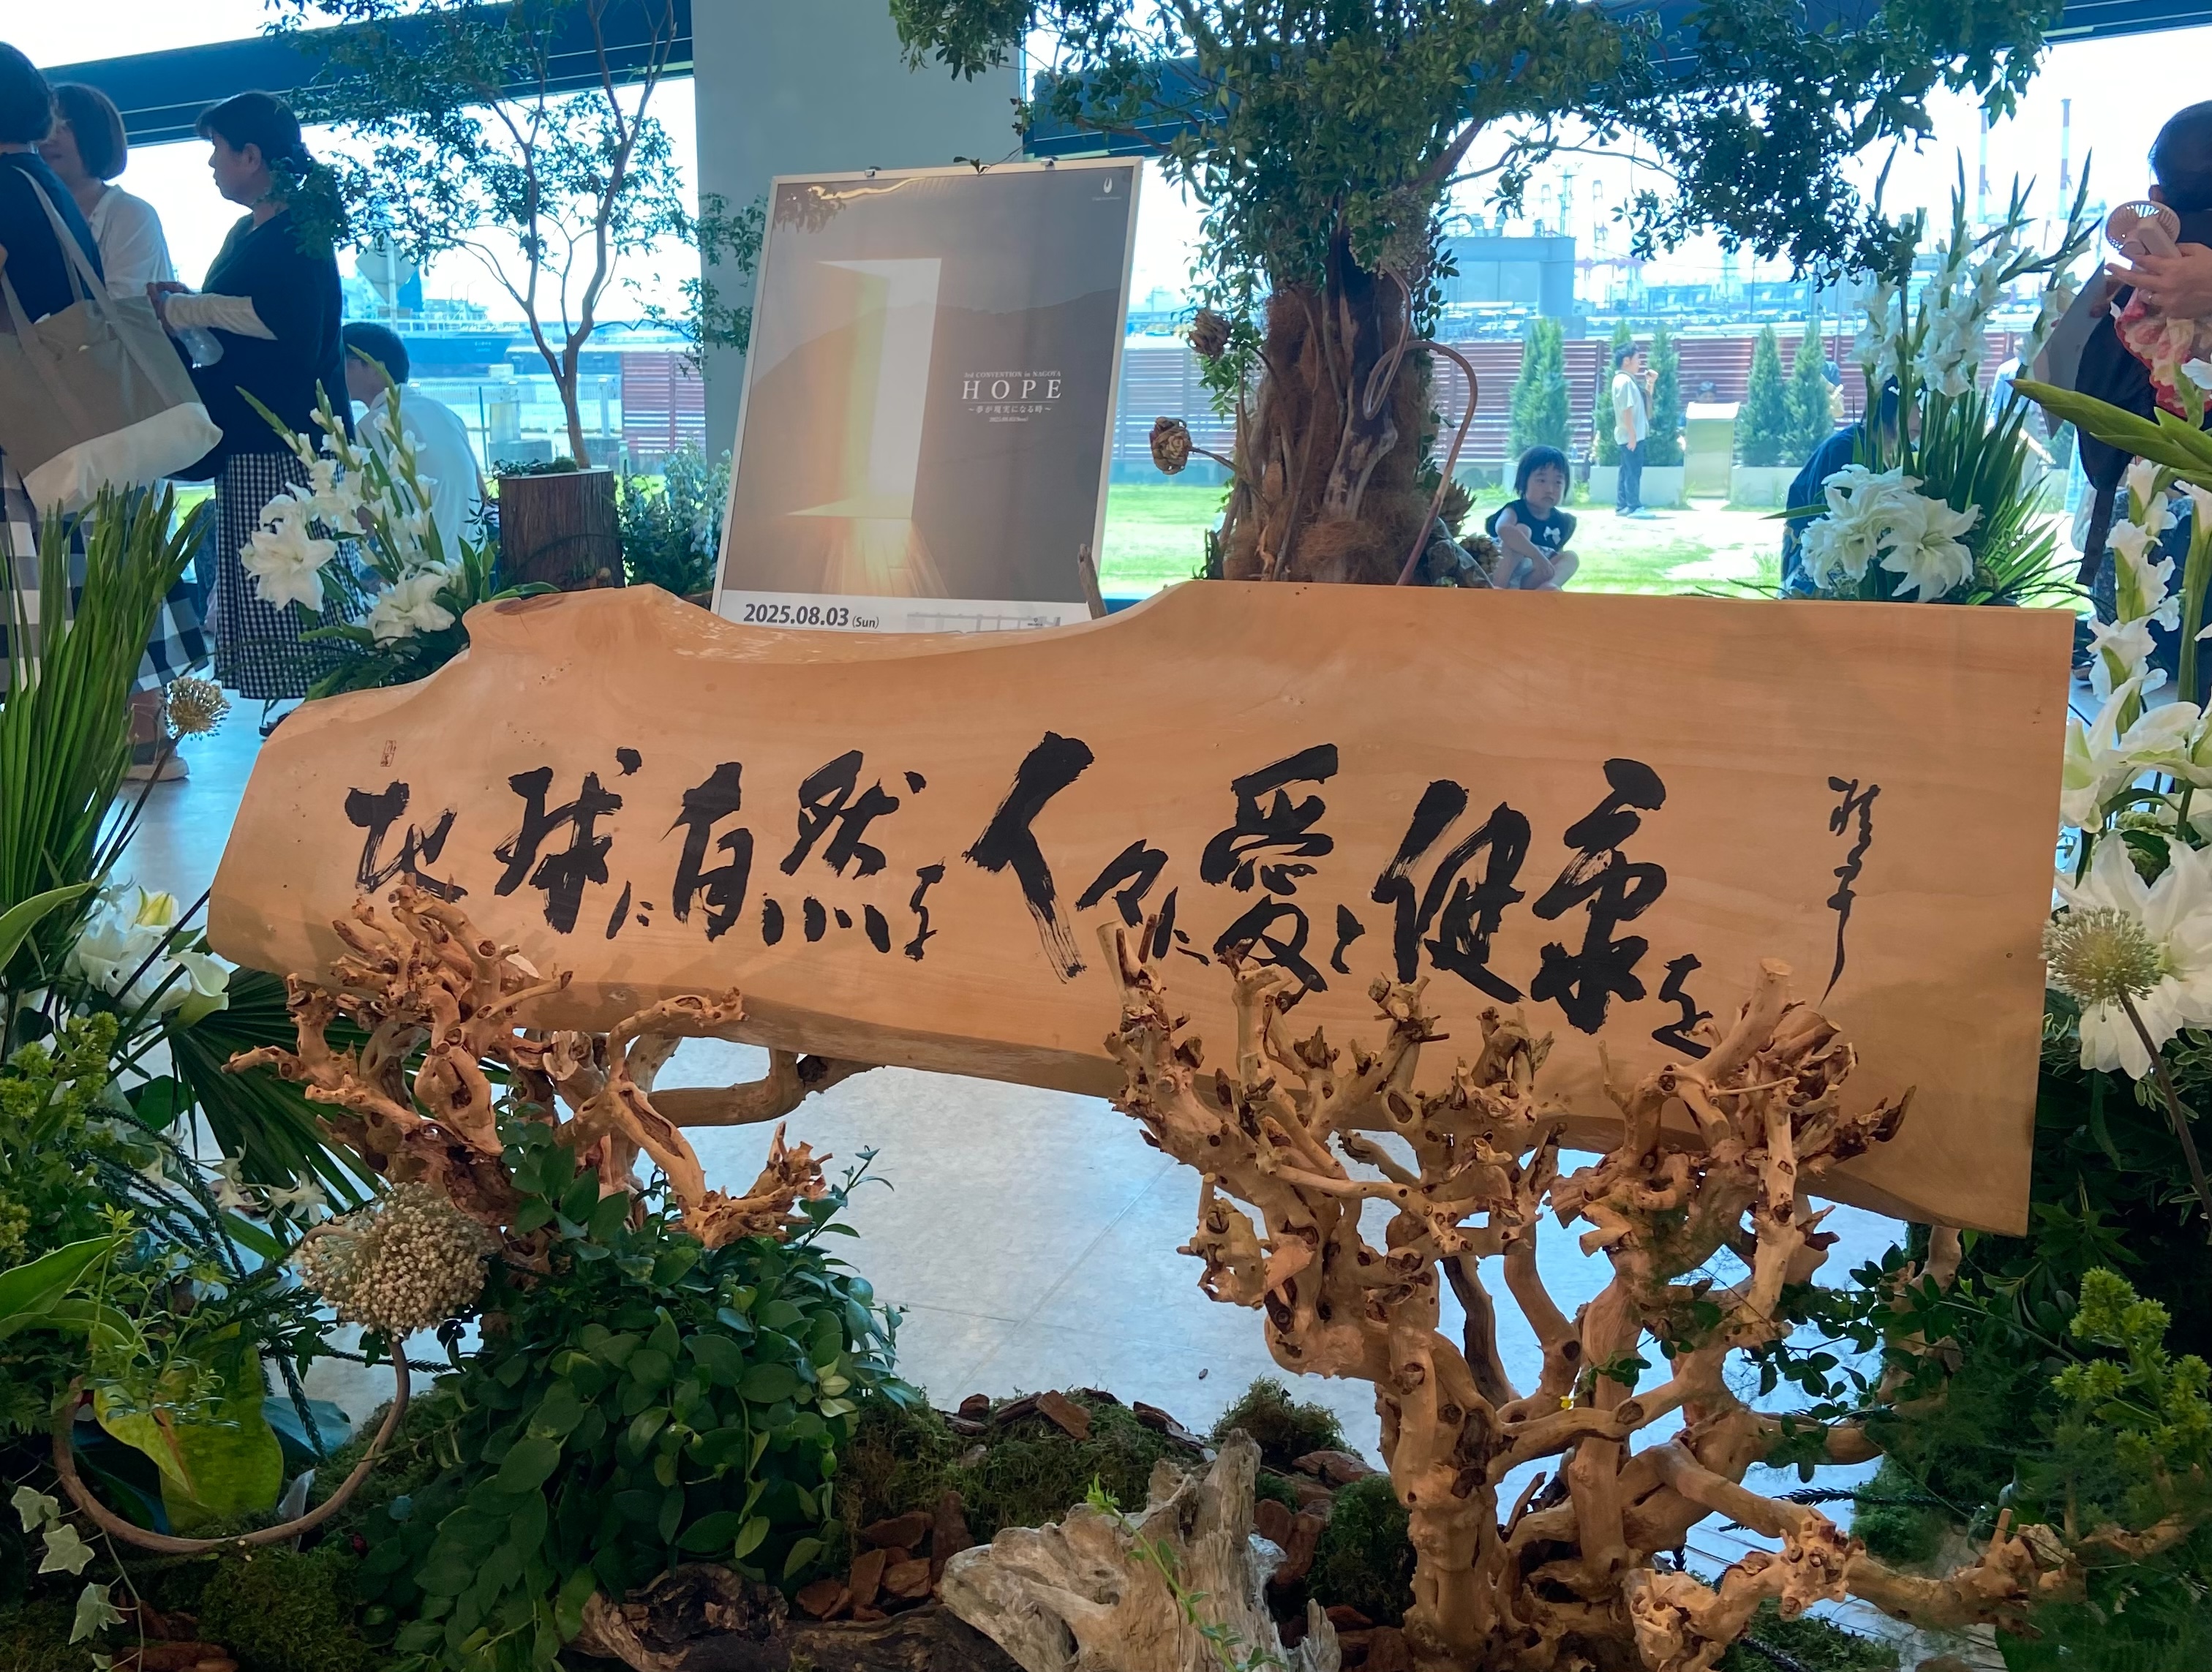 3rd CONVENTION in NAGOYA
HOPE
～夢が現実になる時～
2025.08.03(Sun)
2025.08.03 (Sun)
地球に自然を人々に愛と健康を